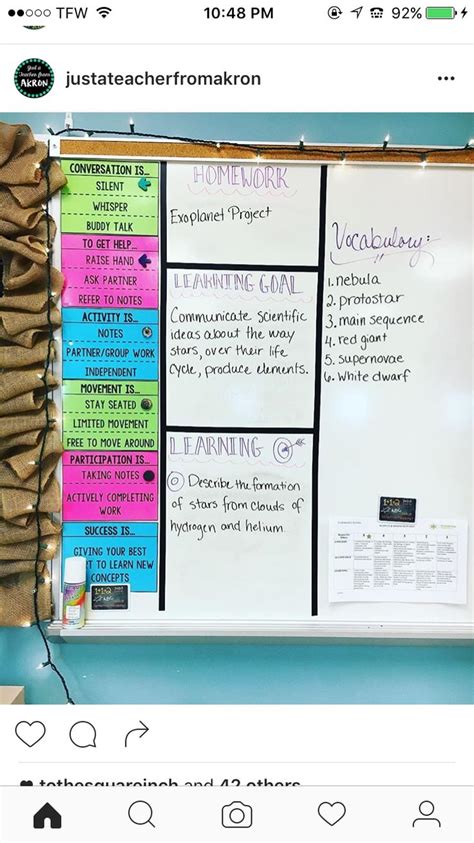 TFW
10:48 PM
92%
Just a
Teacher from
AKRON
justateacherfromakron
CONVERSATION IS...
SILENT
WHISPER
BUDDY TALK
TO GET HELP...
RAISE HAND
ASK PARTNER
REFER TO NOTES
ACTIVITY IS...
NOTES
PARTNER/GROUP WORK
INDEPENDENT
MOVEMENT IS...
STAY SEATED
LIMITED MOVEMENT
FREE TO MOVE AROUND
PARTICIPATION IS...
TAKING NOTES
ACTIVELY COMPLETING
WORK
SUCCESS IS...
GIVING YOUR BEST
TO LEARN NEW
CONCEPTS
HOMEWORK
Exoplanet Project
LEARNING GOAL
Communicate Scientific
ideas about the way
stars, over their life
cycle, produce elements.
LEARNING
Describe the formation
of stars from clouds of
hydrogen and helium
Vocabulary:
1. nebula
2. protostar
3. main sequence
4. red giant
5. supernovae
6. White dwarf
tothesquareinch and 42 others